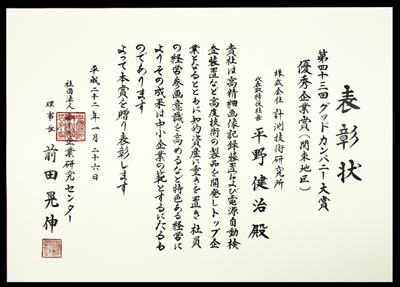 表彰状
第四十三回グッドカンパニー大賞
優秀企業賞(関東地区)
株式会社 計測技術研究所
代表取締役社長 平野健治殿
貴社は高精細画像記録装置および電源自動検
査装置など高度技術の製品を開発しトップ企
業となるとともに知的資産に重きを置き社員
の経営参画意識を高めるなど特色ある経営に
よりその成果は中小企業の範とするにたるも
のであります
よって本賞を贈り表彰します
平成二十二年一月二十六日
社団法人 中小企業研究センター
理事長 前田晃伸